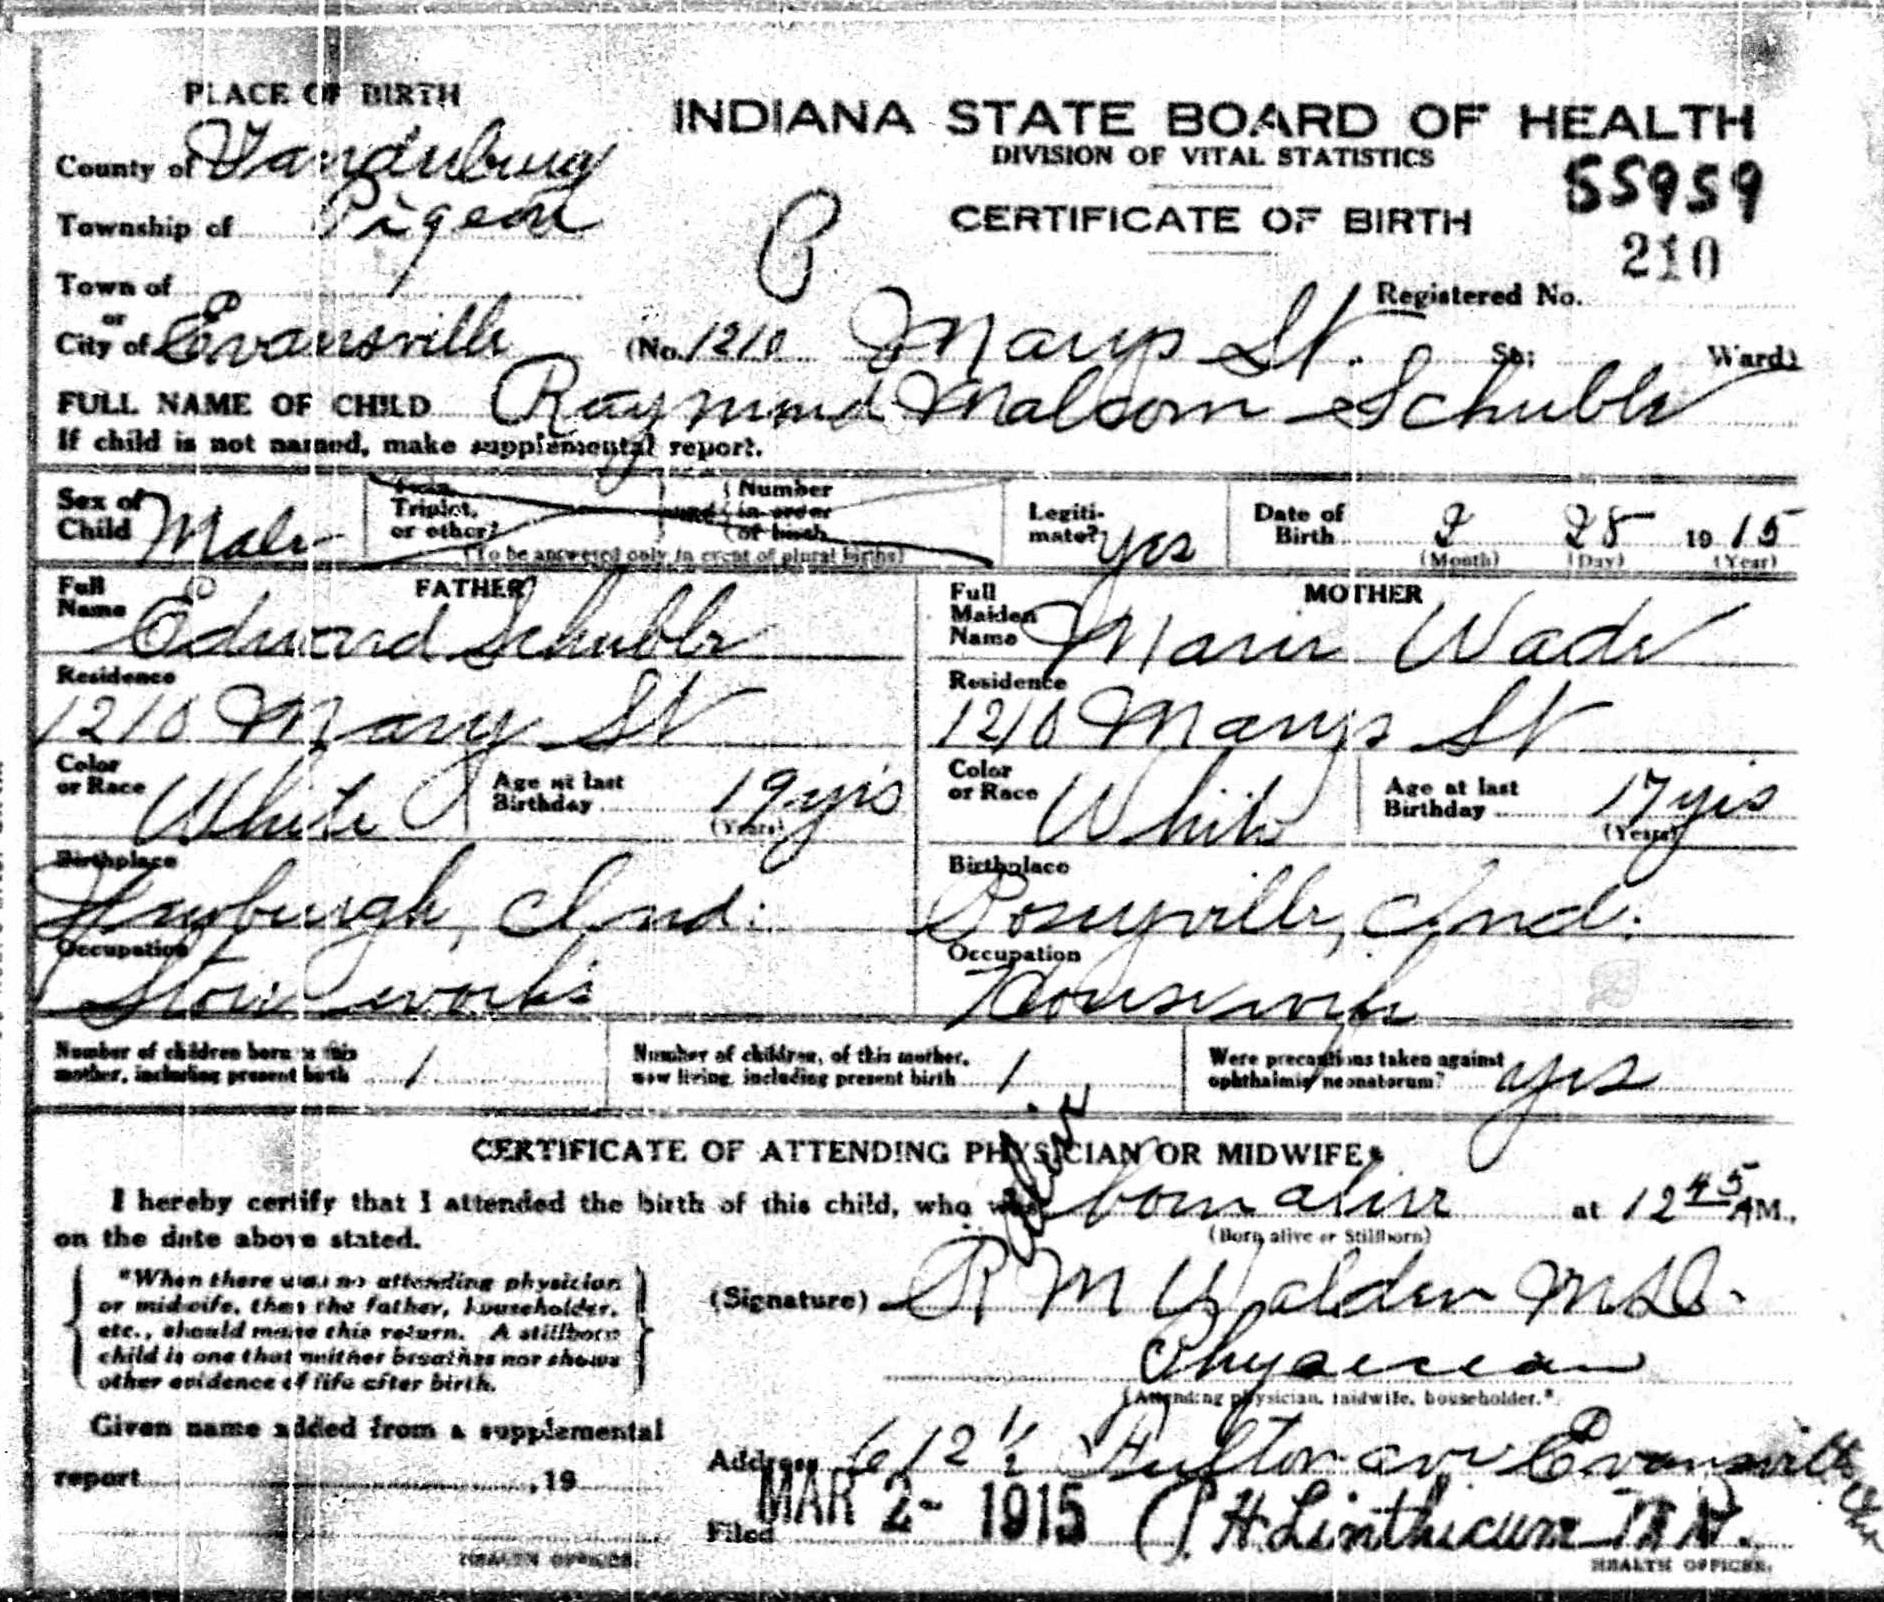 PLACE OF BIRTH
INDIANA STATE BOARD OF HEALTH
DIVISION OF VITAL STATISTICS
County of Vanderburg
55959
Township of Pigeon
CERTIFICATE OF BIRTH
210
Town of
or
Registered No.
City of Evansville (No. 1210 Marys St. St; Ward)
FULL NAME OF CHILD Raymond Malcom Schuble
If child is not named, make supplemental report.
Sex of Child Male
Twin, Triplet, or other? and Number in order of birth
(To be answered only in event of plural births)
Legitimate? yes
Date of Birth 2 28 1915
(Month) (Day) (Year)
FATHER
Full Name Edward Schuble
MOTHER
Full Maiden Name Marie Wade
Residence 1210 Mary St
Residence 1210 Marys St
Color or Race White
Age at last Birthday 19 yrs
(Years)
Color or Race White
Age at last Birthday 17 yrs
(Years)
Birthplace Newburgh, Ind.
Birthplace Poseyville, Ind.
Occupation Stove works
Occupation Housewife
Number of children born to this mother, including present birth 1
Number of children, of this mother, now living, including present birth 1
Were precautions taken against ophthalmia neonatorum? yes
CERTIFICATE OF ATTENDING PHYSICIAN OR MIDWIFE*
I hereby certify that I attended the birth of this child, who was born alive at 12 45 AM.,
(Born alive or Stillborn)
on the date above stated.
*When there was no attending physician
or midwife, then the father, householder,
etc., should make this return. A stillborn
child is one that neither breathes nor shows
other evidence of life after birth.
(Signature) R M Walden M.D.
Physician
(Attending physician, midwife, householder.*
Given name added from a supplemental
report , 19
Address 612 1/2 Fulton ave Evansville
Filed MAR 2- 1915 H Linthicum
HEALTH OFFICER.
HEALTH OFFICER.